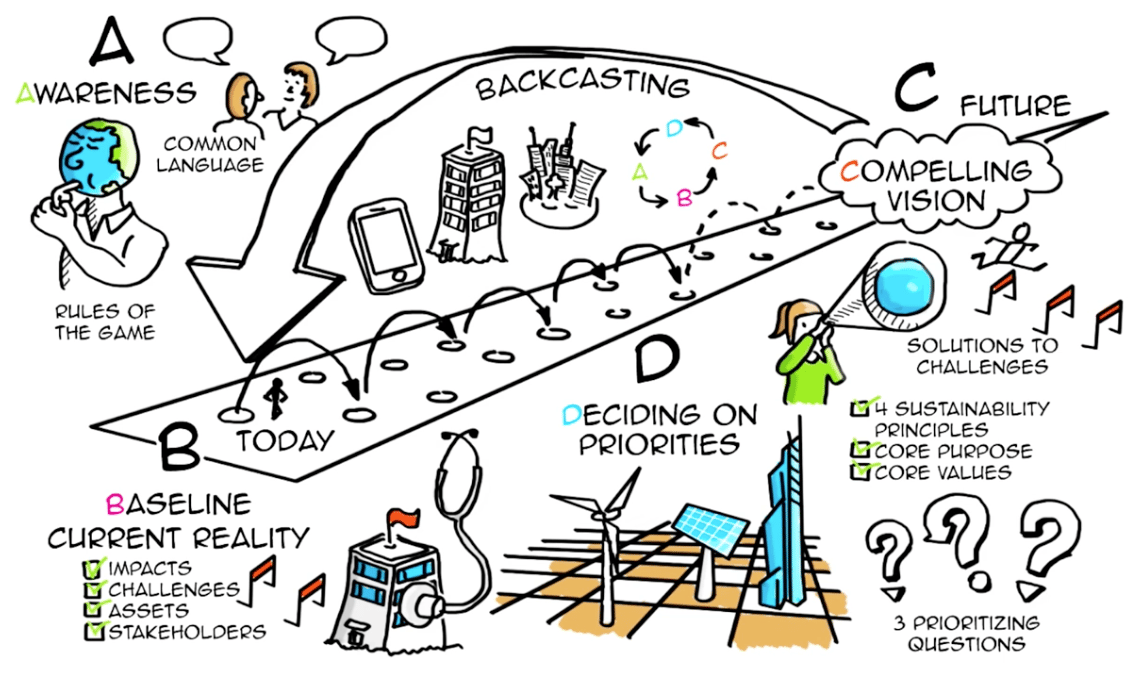 A
AWARENESS
COMMON
LANGUAGE
RULES OF
THE GAME
BACKCASTING
D
C
A
B
C
FUTURE
COMPELLING
VISION
SOLUTIONS TO
CHALLENGES
4 SUSTAINABILITY
PRINCIPLES
CORE PURPOSE
CORE VALUES
B
TODAY
BASELINE
CURRENT REALITY
IMPACTS
CHALLENGES
ASSETS
STAKEHOLDERS
D
DECIDING ON
PRIORITIES
? ? ?
3 PRIORITIZING
QUESTIONS